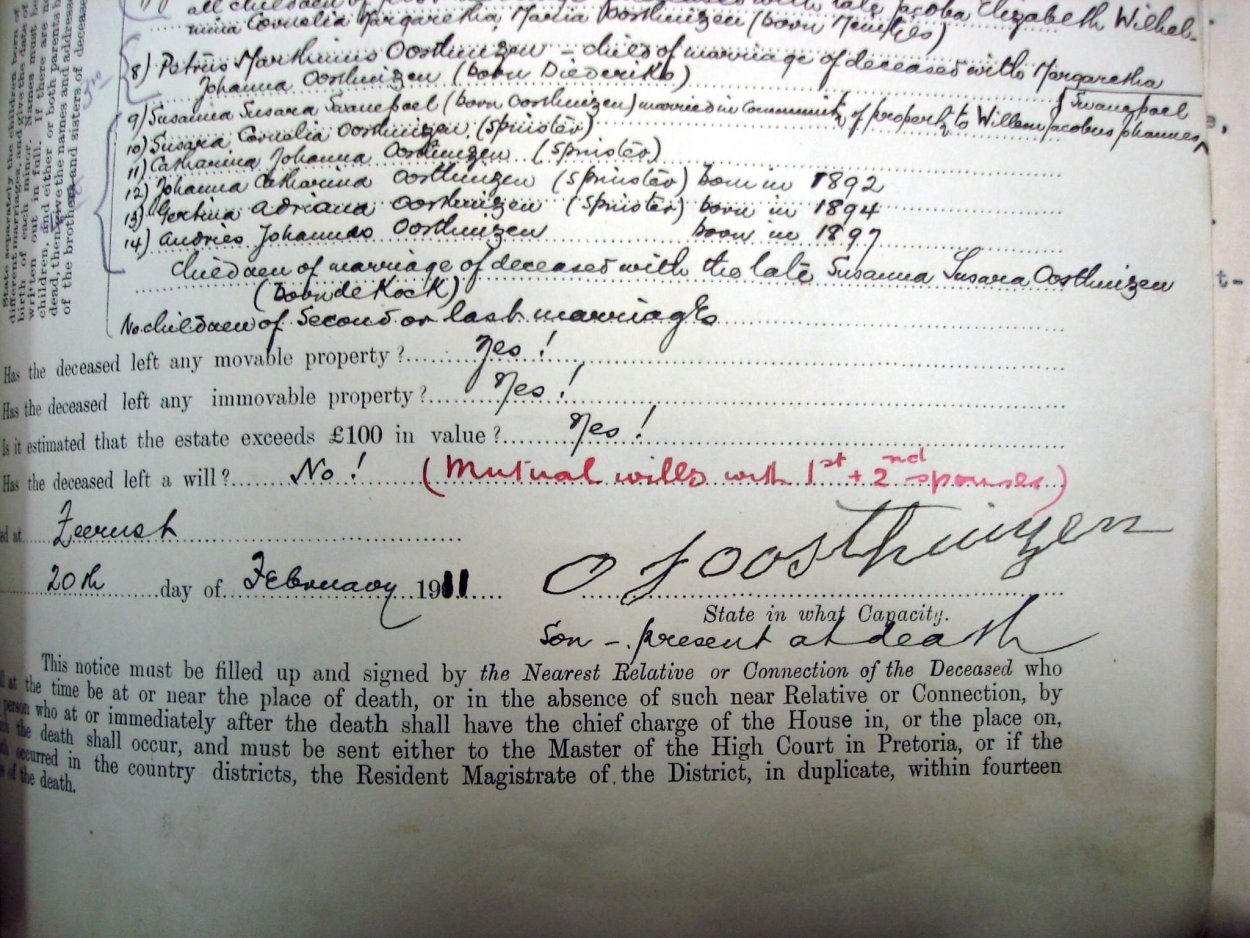 all children of marriage of deceased with late Jacoba Elizabeth Wilhel-
mina Cornelia Margaretha Maria Oosthuizen (born Meintjes)
8) Petrus Marthinus Oosthuizen – child of marriage of deceased with Margaretha
Johanna Oosthuizen (born Diederiks)
9) Susanna Susara Swanepoel (born Oosthuizen) married in Community of property to Willem Jacobus Johannes
Swanepoel
10) Susara Cornelia Oosthuizen (Spinster)
11) Catharina Johanna Oosthuizen (Spinster)
12) Johanna Catharina Oosthuizen (Spinster) born in 1892
13) Gertina Adriana Oosthuizen (Spinster) born in 1894
14) Andries Johannes Oosthuizen born in 1897
children of marriage of deceased with the late Susanna Susara Oosthuizen
(born de Kock)
No children of Second or last marriage
Has the deceased left any movable property? Yes!
Has the deceased left any immovable property? Yes!
Is it estimated that the estate exceeds £100 in value? Yes!
Has the deceased left a will? No! (Mutual wills with 1st + 2nd spouses)
ed at Zeerust
20th day of February 1911
O J Oosthuizen
State in what Capacity.
Son – present at death
This notice must be filled up and signed by the Nearest Relative or Connection of the Deceased who
at the time be at or near the place of death, or in the absence of such near Relative or Connection, by
person who at or immediately after the death shall have the chief charge of the House in, or the place on,
the death shall occur, and must be sent either to the Master of the High Court in Pretoria, or if the
occurred in the country districts, the Resident Magistrate of the District, in duplicate, within fourteen
of the death.
State separately the children born of
different marriages, and give the date of
birth of each minor. Names must be
written out in full. If there are
children, and either or both parents be
dead, then give the names and addresses
of the brothers and sisters of deceased
t-